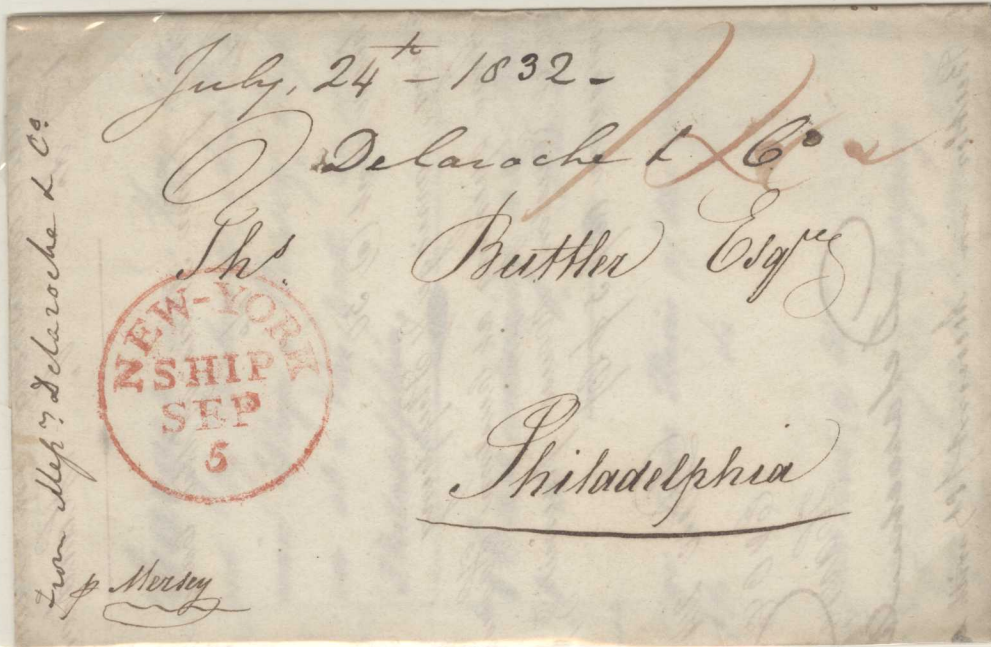 July, 24th - 1832 -
Delaroche & Co
Ths. Buttler Esqre
Philadelphia
NEW-YORK
SHIP
SEP
5
p Mersey
From Messrs Delaroche & Co